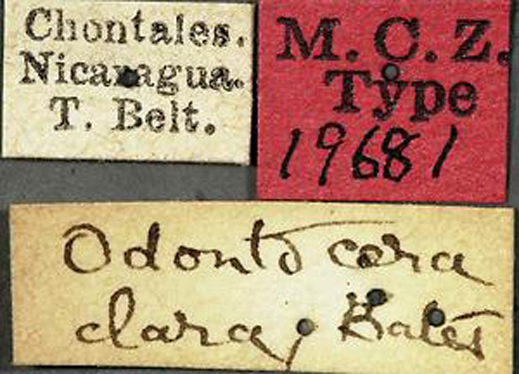 Chontales.
Nicaragua.
T. Belt.
M. C. Z.
Type
19681
Odontocera
clara, Bates